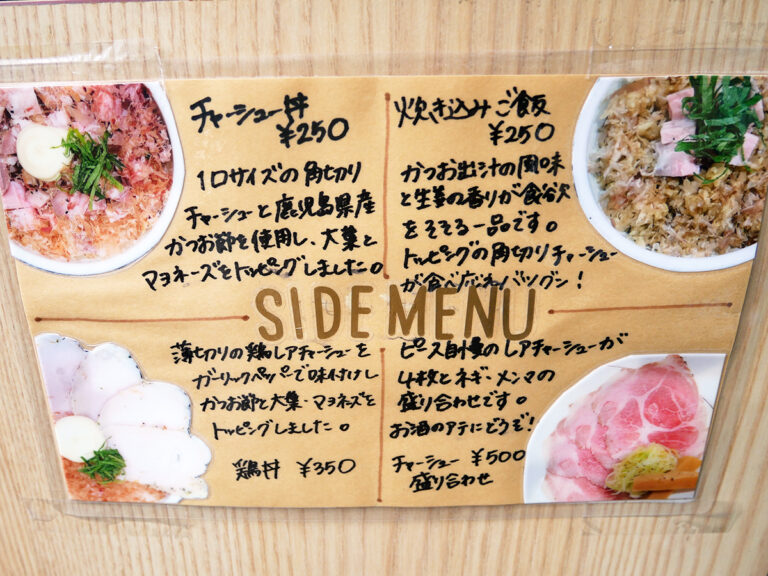 チャーシュー丼
¥250
1口サイズの角切り
チャーシューと鹿児島県産
かつお節を使用し、大葉と
マヨネーズをトッピングしました。
炊き込みご飯
¥250
かつお出汁の風味
と生姜の香りが食欲
をそそる一品です。
トッピングの角切りチャーシュー
が食べ応えバツグン!
SIDE MENU
薄切りの鶏レアチャーシューを
ガーリックペッパーで味付けし
かつお節と大葉・マヨネーズを
トッピングしました。
鶏丼 ¥350
ピース自慢のレアチャーシューが
4枚とネギ・メンマの
盛り合わせです。
お酒のアテにどうぞ!
チャーシュー ¥500
盛り合わせ